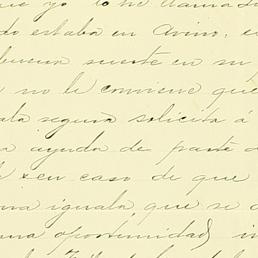 yo lo he llamado
do estaba en Avino, e
buena suerte en su
no le conviene que
segura solicita á
a ayuda de parte d
en caso de que
una iguala, que se
una oportunidad, in